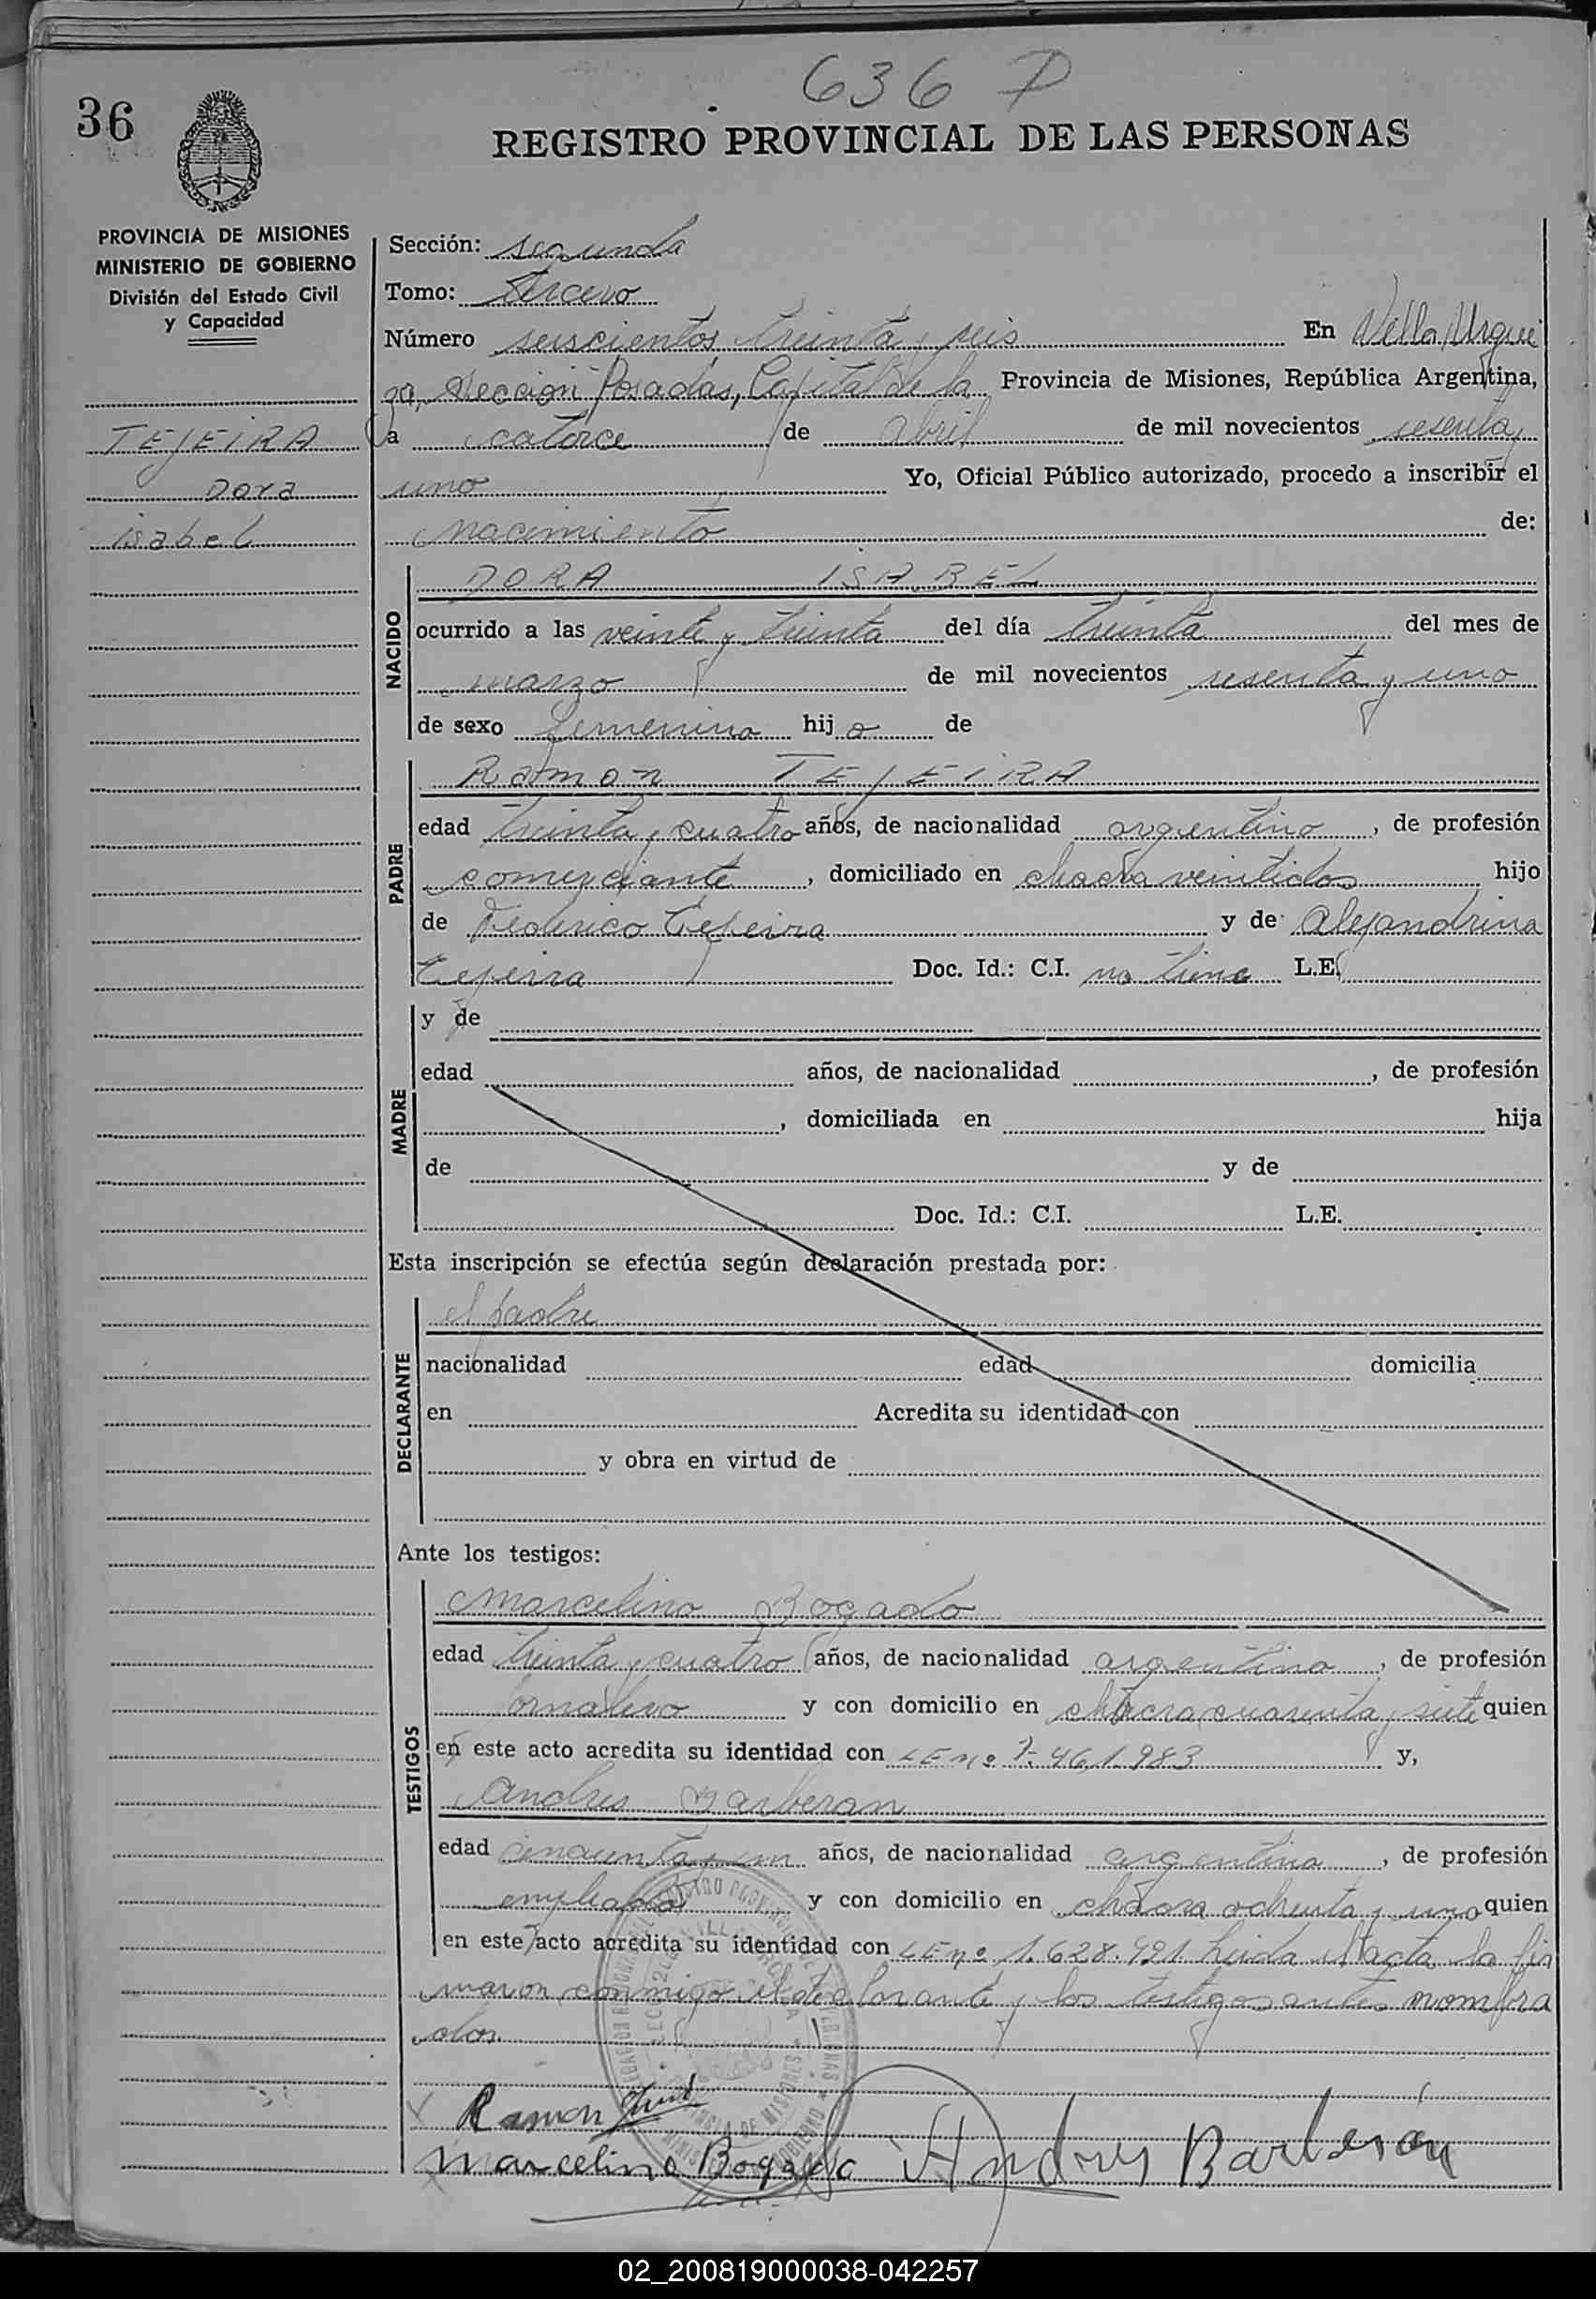 636 D
36
REGISTRO PROVINCIAL DE LAS PERSONAS
PROVINCIA DE MISIONES
MINISTERIO DE GOBIERNO
División del Estado Civil
y Capacidad
TEJEIRA
Dora
isabel
Sección: segunda
Tomo: tercero
Número seiscientos treinta y seis En Villa Urqui
za, Sección Posadas, Capital de la Provincia de Misiones, República Argentina,
a catorce de abril de mil novecientos sesenta y
uno Yo, Oficial Público autorizado, procedo a inscribir el
nacimiento de:
NACIDO
DORA ISABEL
ocurrido a las veinte y treinta del día treinta del mes de
marzo de mil novecientos sesenta y uno
de sexo femenino hija de
PADRE
Ramon TEJEIRA
edad treinta y cuatro años, de nacionalidad argentino, de profesión
comerciante, domiciliado en chacra veintidos hijo
de Federico Tejeira y de Alejandrina
Tejeira Doc. Id.: C.I. no tiene L.E.
MADRE
y de
edad años, de nacionalidad , de profesión
, domiciliada en hija
de y de
Doc. Id.: C.I. L.E.
Esta inscripción se efectúa según declaración prestada por:
DECLARANTE
el padre
nacionalidad edad domicilia
en Acredita su identidad con
y obra en virtud de
Ante los testigos:
TESTIGOS
Marcelino Bogado
edad treinta y cuatro años, de nacionalidad argentina, de profesión
jornalero y con domicilio en chacra cuarenta y siete quien
en este acto acredita su identidad con LE nº 7.461.983 y,
Andres Barberan
edad cincuenta y un años, de nacionalidad argentina, de profesión
empleado y con domicilio en chacra ochenta y uno quien
en este acto acredita su identidad con LE nº 1.628.921. Leida el acta la fir
maron conmigo el declarante y los testigos antes nombra
dos.
Ramon
Marcelino Bogado Andres Barberán
02_200819000038-042257